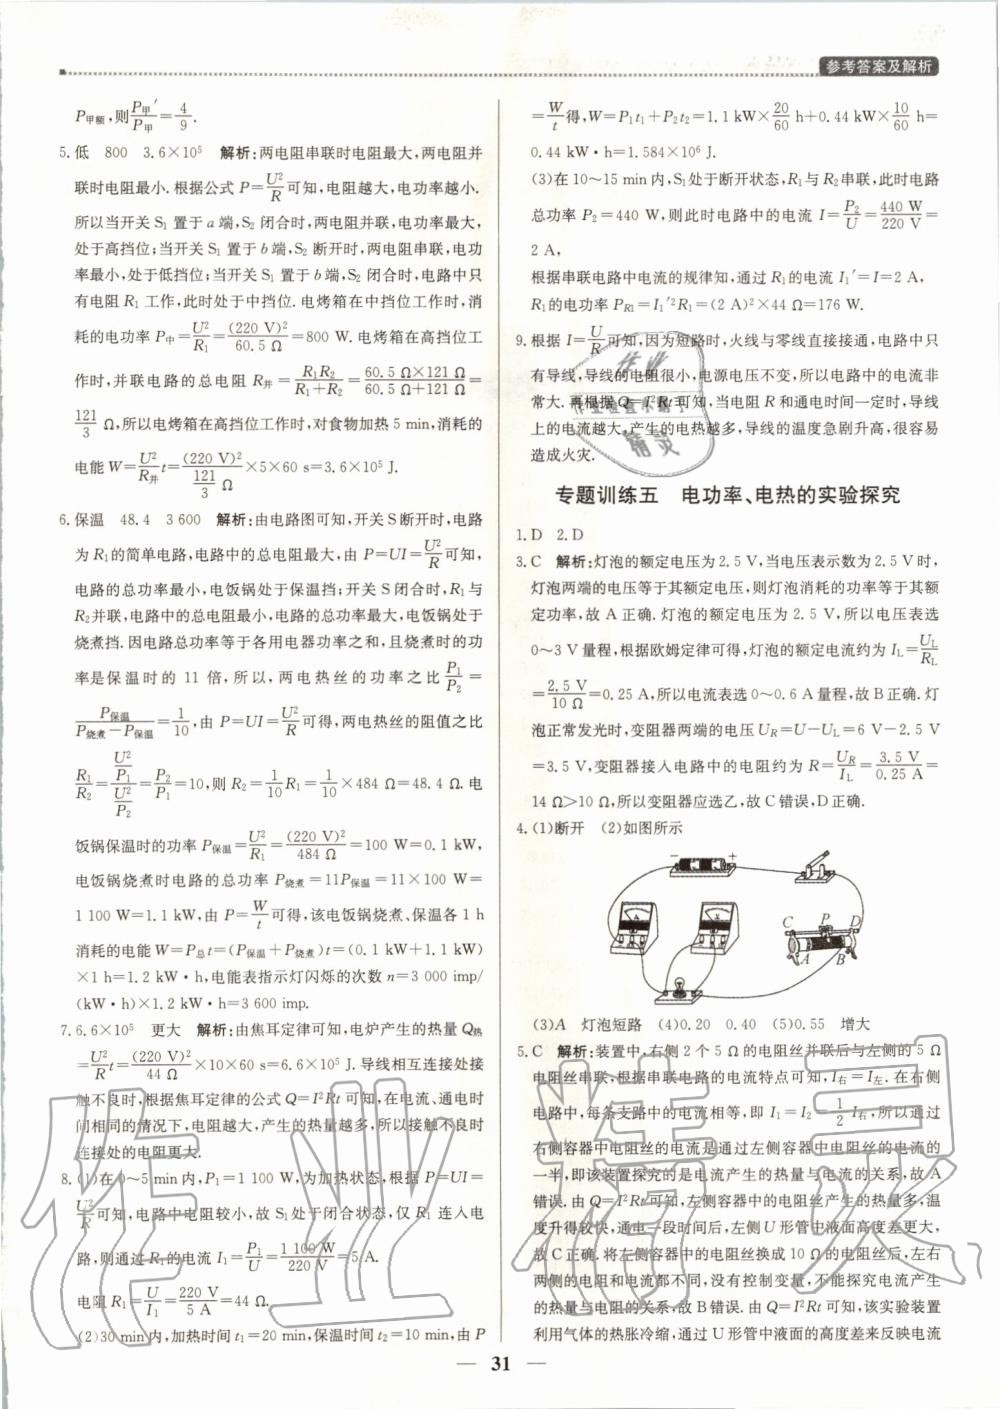 参考答案及解析
P甲额,则P甲′/P甲=4/9.
5.低 800 3.6×10⁵ 解析:两电阻串联时电阻最大,两电阻并
联时电阻最小.根据公式 P=U²/R可知,电阻越大,电功率越小.
所以当开关 S₁ 置于 a 端,S₂ 闭合时,两电阻并联,电功率最大,
处于高挡位;当开关 S₁ 置于 b 端,S₂ 断开时,两电阻串联,电功
率最小,处于低挡位;当开关 S₁ 置于 b 端,S₂ 闭合时,电路中只
有电阻 R₁ 工作,此时处于中挡位.电烤箱在中挡位工作时,消
耗的电功率 P中=U²/R₁=(220 V)²/60.5 Ω=800 W.电烤箱在高挡位工
作时,并联电路的总电阻 R并=R₁R₂/(R₁+R₂)=(60.5 Ω×121 Ω)/(60.5 Ω+121 Ω)=
121/3 Ω,所以电烤箱在高挡位工作时,对食物加热 5 min,消耗的
电能 W=U²/R并 t=(220 V)²/(121/3 Ω)×5×60 s=3.6×10⁵ J.
6.保温 48.4 3 600 解析:由电路图可知,开关 S 断开时,电路
为 R₁的简单电路,电路中的总电阻最大,由 P=UI=U²/R可知,
电路的总功率最小,电饭锅处于保温挡;开关 S 闭合时,R₁与
R₂并联,电路中的总电阻最小,电路的总功率最大,电饭锅处于
烧煮挡.因电路总功率等于各用电器功率之和,且烧煮时的功
率是保温时的 11 倍,所以,两电热丝的功率之比P₁/P₂=
P保温/(P烧煮−P保温)=1/10,由 P=UI=U²/R可得,两电热丝的阻值之比
R₁/R₂=(U²/P₁)/(U²/P₂)=P₂/P₁=10,则 R₂=1/10R₁=1/10×484 Ω=48.4 Ω.电
饭锅保温时的功率 P保温=U²/R₁=(220 V)²/484 Ω=100 W=0.1 kW,
电饭锅烧煮时电路的总功率 P烧煮=11P保温=11×100 W=
1 100 W=1.1 kW,由 P=W/t可得,该电饭锅烧煮、保温各 1 h
消耗的电能 W=P总t=(P保温+P烧煮)t=(0.1 kW+1.1 kW)
×1 h=1.2 kW·h,电能表指示灯闪烁的次数 n=3 000 imp/
(kW·h)×1.2 kW·h=3 600 imp.
7.6.6×10⁵ 更大 解析:由焦耳定律可知,电炉产生的热量 Q热
=U²/R t=(220 V)²/44 Ω×10×60 s=6.6×10⁵ J.导线相互连接处接
触不良时,根据焦耳定律的公式 Q=I²Rt 可知,在电流、通电时
间相同的情况下,电阻越大,产生的热量越多,所以接触不良时
连接处的电阻更大.
8.(1)在 0~5 min 内,P₁=1 100 W,为加热状态,根据 P=UI=
U²/R可知,电路中电阻较小,故 S₁ 处于闭合状态,仅 R₁ 连入电
路,则通过 R₁的电流 I₁=P₁/U=1 100 W/220 V=5 A.
电阻 R₁=U/I₁=220 V/5 A=44 Ω.
(2)30 min内,加热时间 t₁=20 min,保温时间 t₂=10 min,由 P
=W/t得,W=P₁t₁+P₂t₂=1.1 kW×20/60 h+0.44 kW×10/60 h=
0.44 kW·h=1.584×10⁶ J.
(3)在 10~15 min 内,S₁处于断开状态,R₁与 R₂串联,此时电路
总功率 P₂=440 W,则此时电路中的电流 I=P₂/U=440 W/220 V=
2 A,
根据串联电路中电流的规律知,通过 R₁的电流 I₁′=I=2 A,
R₁的电功率 PR1=I₁′²R₁=(2 A)²×44 Ω=176 W.
9.根据 I=U/R可知,因为短路时,火线与零线直接接通,电路中只
有导线,导线的电阻很小,电源电压不变,所以电路中的电流非
常大.再根据 Q=I²Rt 可知,当电阻 R 和通电时间一定时,导线
上的电流越大,产生的电热越多,导线的温度急剧升高,很容易
造成火灾.
专题训练五 电功率、电热的实验探究
1.D 2.D
3.C 解析:灯泡的额定电压为 2.5 V,当电压表示数为 2.5 V时,
灯泡两端的电压等于其额定电压,则灯泡消耗的功率等于其额
定功率,故 A 正确.灯泡的额定电压为 2.5 V,所以电压表选
0~3 V量程,根据欧姆定律可得,灯泡的额定电流约为 IL=UL/RL
=2.5 V/10 Ω=0.25 A,所以电流表选 0~0.6 A 量程,故 B 正确.灯
泡正常发光时,变阻器两端的电压 UR=U−UL=6 V−2.5 V
=3.5 V,变阻器接入电路中的电阻约为 R=UR/IL=3.5 V/0.25 A=
14 Ω>10 Ω,所以变阻器应选乙,故 C 错误,D 正确.
4.(1)断开 (2)如图所示
− +
A V
C P D
A B
(3)A 灯泡短路 (4)0.20 0.40 (5)0.55 增大
5.C 解析:装置中,右侧 2 个 5 Ω 的电阻丝并联后与左侧的 5 Ω
电阻丝串联,根据串联电路的电流特点可知,I右=I左.在右侧
电路中,每条支路中的电流相等,即 I₁=I₂=1/2 I右,所以通过
右侧容器中电阻丝的电流是通过左侧容器中电阻丝的电流的
一半,即该装置探究的是电流产生的热量与电流的关系,故 A
错误.由 Q=I²Rt可知,左侧容器中的电阻丝产生的热量多,温
度升得较快,通电一段时间后,左侧 U 形管中液面高度差更大,
故 C 正确.将左侧容器中的电阻丝换成 10 Ω 的电阻丝后,左右
两侧的电阻和电流都不同,没有控制变量,不能探究电流产生
的热量与电阻的关系,故 B 错误.由 Q=I²Rt 可知,该实验装置
利用气体的热胀冷缩,通过 U 形管中液面的高度差来反映电流
31
作业精灵